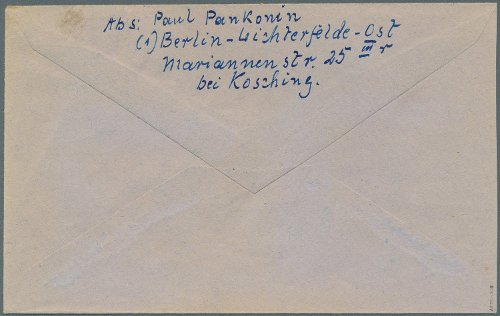 Abs: Paul Pankonin
(1) Berlin-Lichterfelde-Ost
Mariannenstr. 25 III r
bei Kosching.